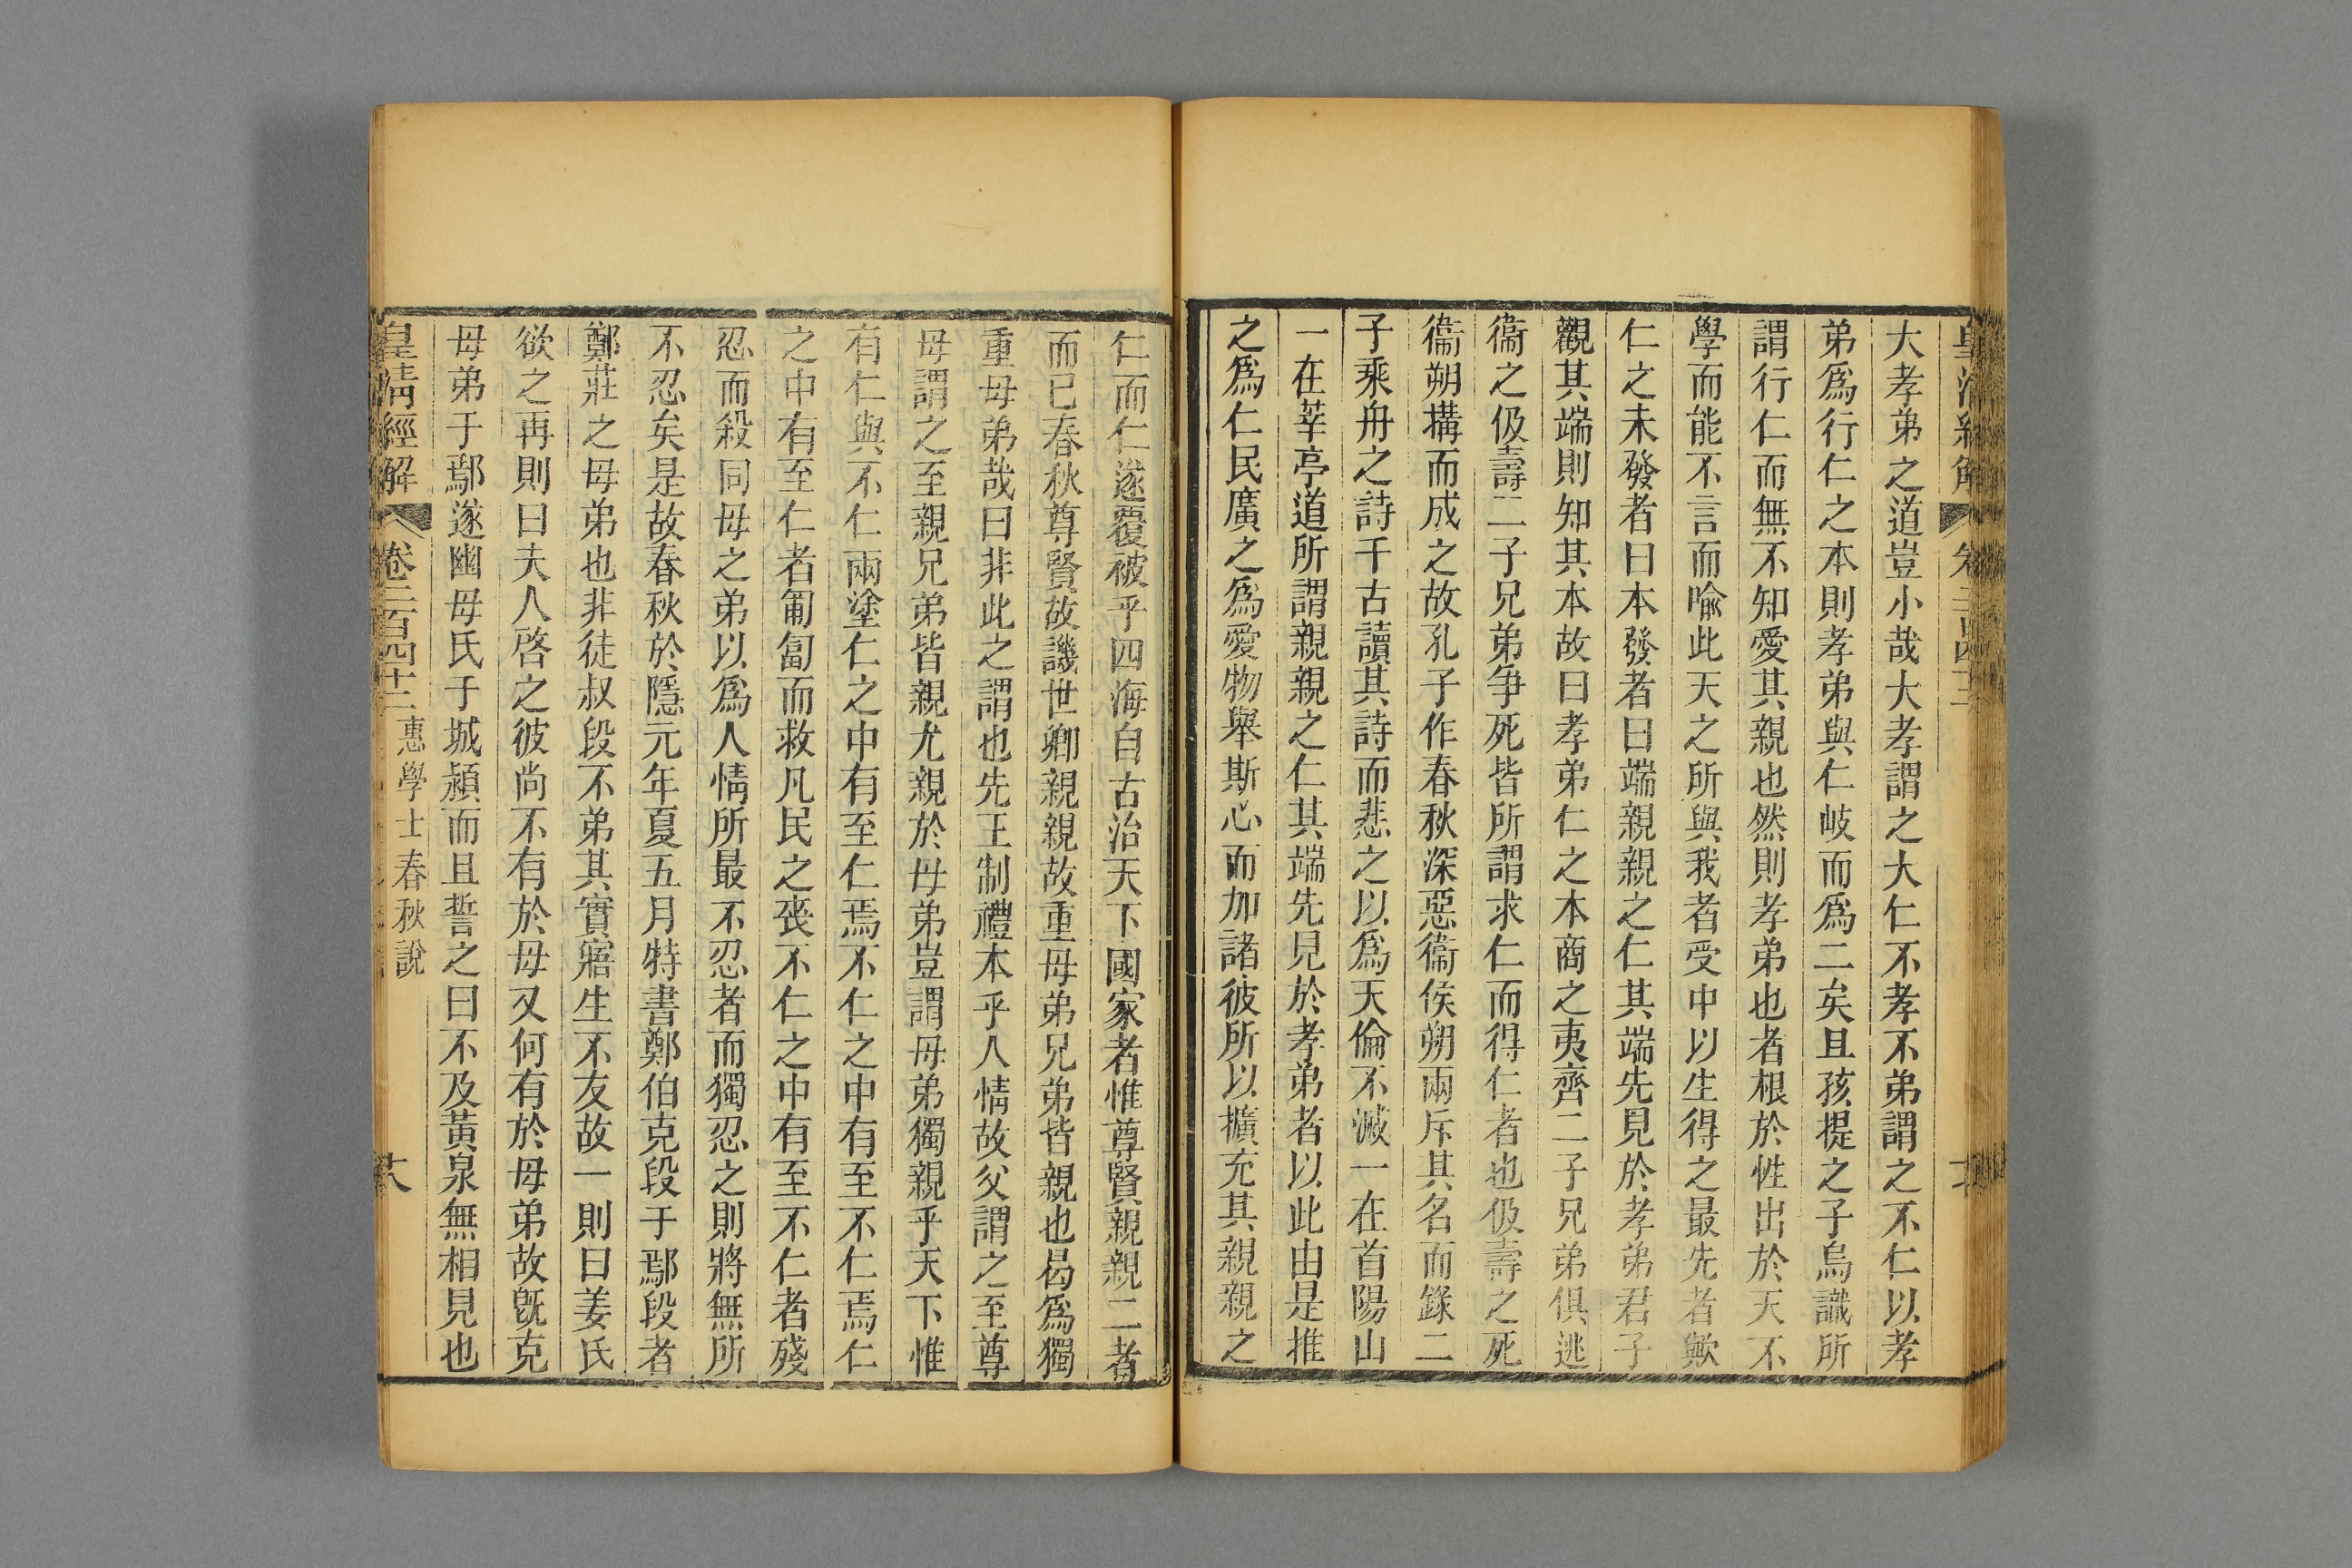 大孝弟之道豈小哉大孝謂之大仁不孝不弟謂之不仁以孝
弟爲行仁之本則孝弟與仁岐而爲二矣且孩提之子烏識所
謂行仁而無不知愛其親也然則孝弟也者根於性出於天不
學而能不言而喻此天之所與我者受中以生得之最先者歟
仁之未發者曰本發者曰端親親之仁其端先見於孝弟君子
觀其端則知其本故曰孝弟仁之本商之夷齊二子兄弟俱逃
衞之伋壽二子兄弟争死皆所謂求仁而得仁者也伋壽之死
衞朔搆而成之故孔子作春秋深惡衞侯朔兩斥其名而錄二
子乘舟之詩千古讀其詩而悲之以爲天倫不滅一在首陽山
一在莘亭道所謂親親之仁其端先見於孝弟者以此由是推
之爲仁民廣之爲愛物舉斯心而加諸彼所以擴充其親親之
仁而仁遂覆被乎四海自古治天下國家者惟尊賢親親二者
而已春秋尊賢故譏世卿親親故重母弟兄弟皆親也曷爲獨
重母弟哉曰非此之謂也先王制禮本乎人情故父謂之至尊
母謂之至親兄弟皆親尤親於母弟豈謂母弟獨親乎天下惟
有仁與不仁兩塗仁之中有至仁焉不仁之中有至不仁焉仁
之中有至仁者匍匐而救凡民之喪不仁之中有至不仁者殘
忍而殺同母之弟以爲人情所最不忍者而獨忍之則將無所
不忍矣是故春秋於隱元年夏五月特書鄭伯克段于鄢段者
鄭莊之母弟也非徒叔段不弟其實寤生不友故一則曰姜氏
欲之再則曰夫人啓之彼尚不有於母又何有於母弟故旣克
母弟于鄢遂幽母氏于城潁而且誓之曰不及黃泉無相見也
皇清經解 卷二百四十二 惠學士春秋說 大